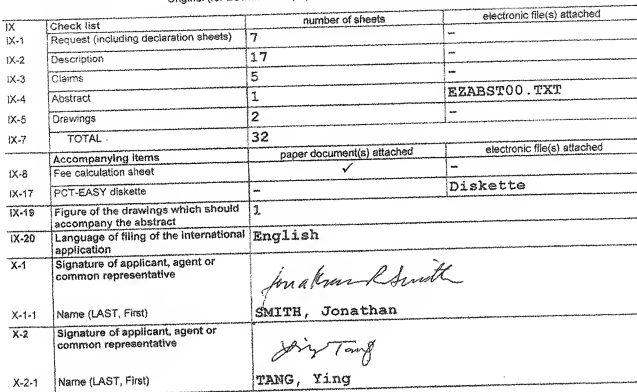 IX Check list number of sheets electronic file(s) attached
IX-1 Request (including declaration sheets) 7 –
IX-2 Description 17 –
IX-3 Claims 5 –
IX-4 Abstract 1 EZABST00.TXT
IX-5 Drawings 2 –
IX-7 TOTAL 32
Accompanying items paper document(s) attached electronic file(s) attached
IX-8 Fee calculation sheet ✓ –
IX-17 PCT-EASY diskette – Diskette
IX-19 Figure of the drawings which should 1
accompany the abstract
IX-20 Language of filing of the international English
application
X-1 Signature of applicant, agent or
common representative
Jonathan R Smith
X-1-1 Name (LAST, First) SMITH, Jonathan
X-2 Signature of applicant, agent or
common representative
Ying Tang
X-2-1 Name (LAST, First) TANG, Ying